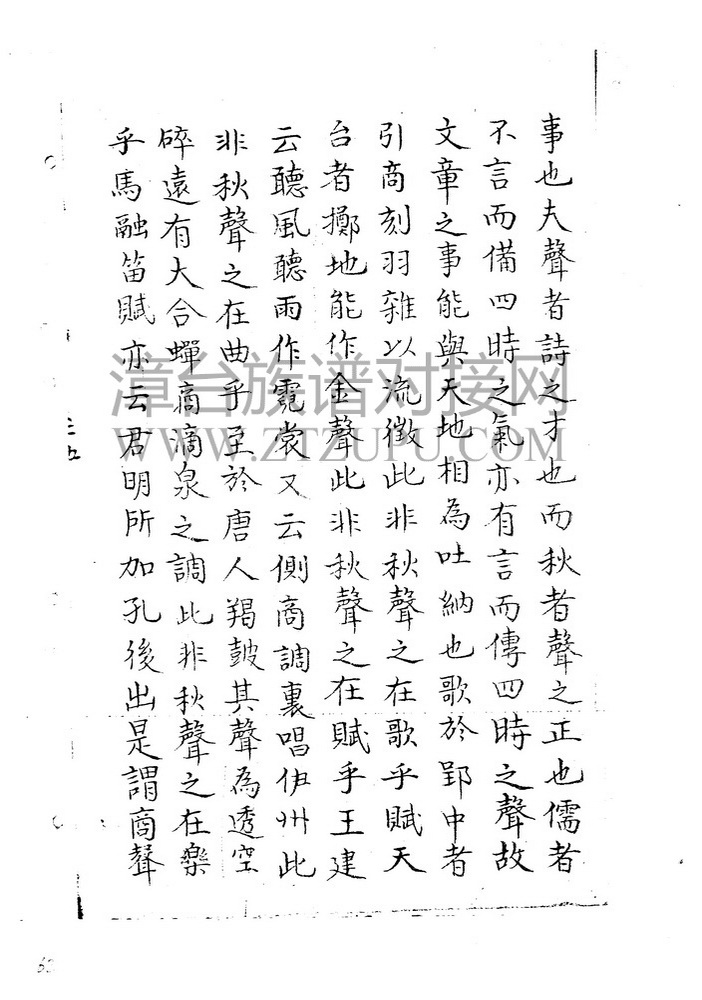 事也夫聲者詩之才也而秋者聲之正也儒者
不言而備四時之氣亦有言而傳四時之聲故
文章之事能與天地相為吐納也歌於郢中者
引商刻羽雜以流徵此非秋聲之在歌乎賦天
台者擲地能作金聲此非秋聲之在賦乎王建
云聽風聽雨作霓裳又云側商調裏唱伊州此
非秋聲之在曲乎至於唐人羯鼓其聲為透空
碎遠有大合蟬商滴泉之調此非秋聲之在樂
乎馬融笛賦亦云君明所加孔後出是謂商聲
漳台族谱对接网
WWW.ZTZUPU.COM